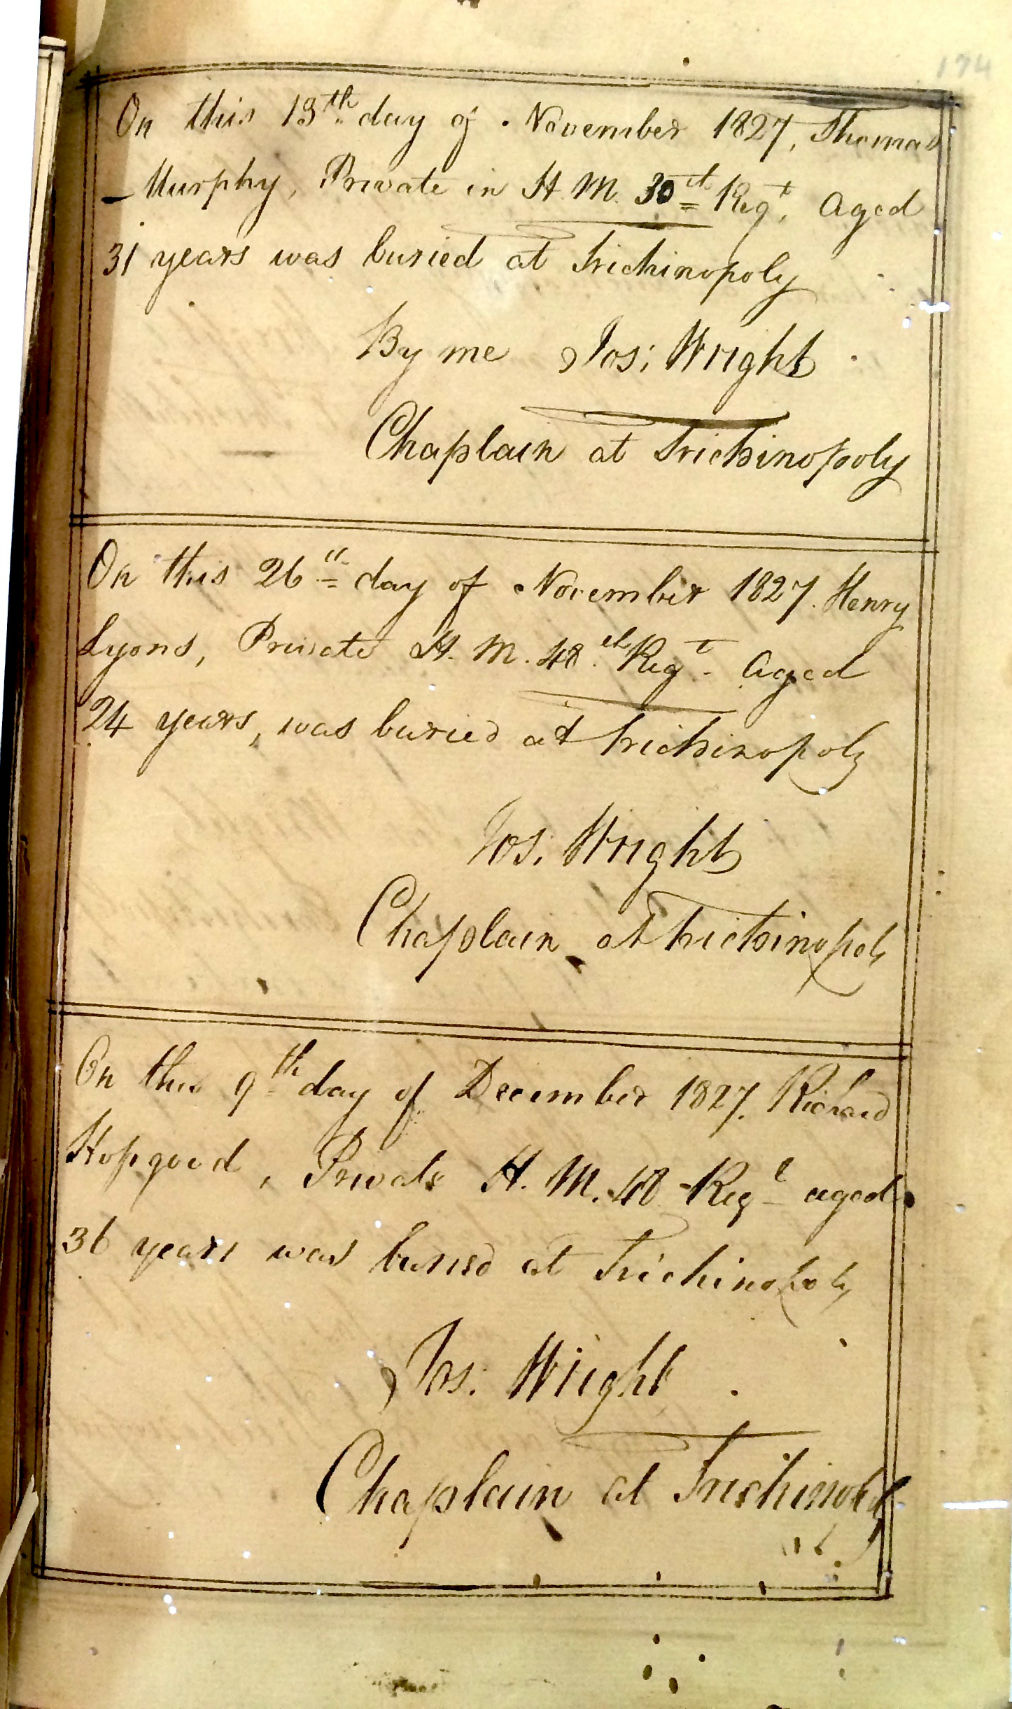 174
On this 13th day of November 1827, Thomas
Murphy, Private in H. M. 30th Regt, aged
31 years was buried at Trichinopoly
By me Jos: Wright
Chaplain at Trichinopoly
On this 26th day of November 1827. Henry
Lyons, Private H. M. 48th Regt aged
24 years, was buried at Trichinopoly
Jos: Wright
Chaplain at Trichinopoly
On this 9th day of December 1827. Richard
Hopgood, Private H. M. 48 Regt aged
36 years was buried at Trichinopoly
Jos: Wright.
Chaplain at Trichinopoly